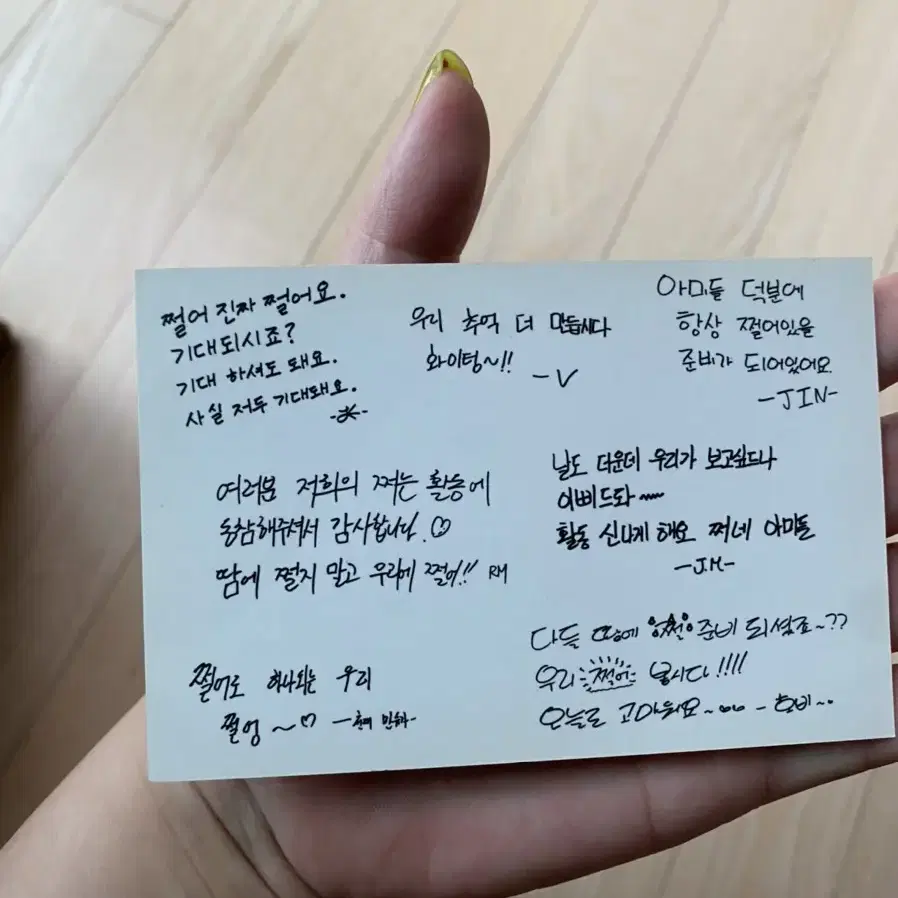 쩔어 진짜 쩔어요.
기대되시죠?
기대 하셔도 돼요.
사실 저두 기대돼요.
우리 추억 더 만듭시다
화이팅~!!
-V
아미들 덕분에
항상 쩔어있을
준비가 되어있어요
-JIN-
여러분 저희의 쩌는 활동에
동참해주셔서 감사합니다.♡
땀에 쩔지 말고 우리에 쩔어!! RM
날도 더운데 우리가 보고싶드나
이삐드롸~~
활동 신나게 해요 쩌네 아미들
-JM-
쩔어로 하나되는 우리
쩔엉~♡
다들 땀에 쩔 준비 되셨죠~??
우리 쩔어 봅시다!!!!
오늘도 고마워요~